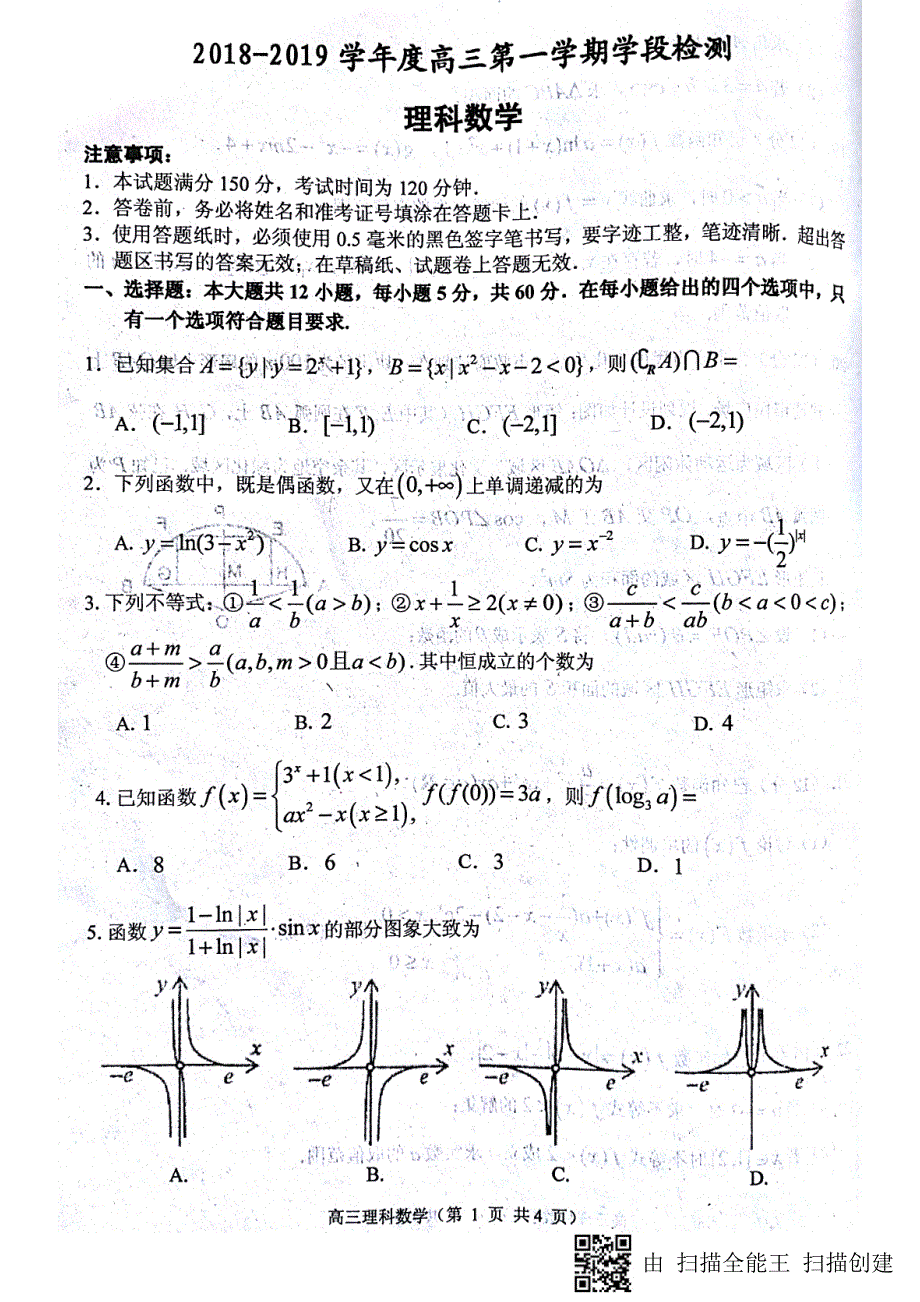 2018-2019 学年度高三第一学期学段检测
理科数学
注意事项：
1．本试题满分 150 分，考试时间为 120 分钟．
2．答卷前，务必将姓名和准考证号填涂在答题卡上．
3．使用答题纸时，必须使用 0.5 毫米的黑色签字笔书写，要字迹工整，笔迹清晰．超出答
题区书写的答案无效；在草稿纸、试题卷上答题无效．
一、选择题：本大题共 12 小题，每小题 5 分，共 60 分．在每小题给出的四个选项中，只
有一个选项符合题目要求．
1．已知集合 A={y|y=2ˣ+1}，B={x|x²−x−2<0}，则 (∁_R A)⋂B=
A．(−1,1] B．[−1,1) C．(−2,1] D．(−2,1)
2．下列函数中，既是偶函数，又在(0,+∞)上单调递减的为
A. y=ln(3−x²) B. y=cos x C. y=x⁻² D. y=−(1/2)^|x|
3. 下列不等式：① 1/a < 1/b (a>b)；② x+1/x ≥ 2(x≠0)；③ c/(a+b) < c/(ab) (b<a<0<c)；
④ (a+m)/(b+m) > a/b (a,b,m>0且a<b)．其中恒成立的个数为
A. 1 B. 2 C. 3 D. 4
4. 已知函数 f(x)={3ˣ+1(x<1), ax²−x(x≥1), f(f(0))=3a，则 f(log₃ a)=
A．8 B．6 C．3 D．1
5. 函数 y=(1−ln|x|)/(1+ln|x|)·sin x 的部分图象大致为
y x −e e y x −e e y x −e e y x −e e
A. B. C. D.
高三理科数学（第 1 页 共 4 页）
由 扫描全能王 扫描创建